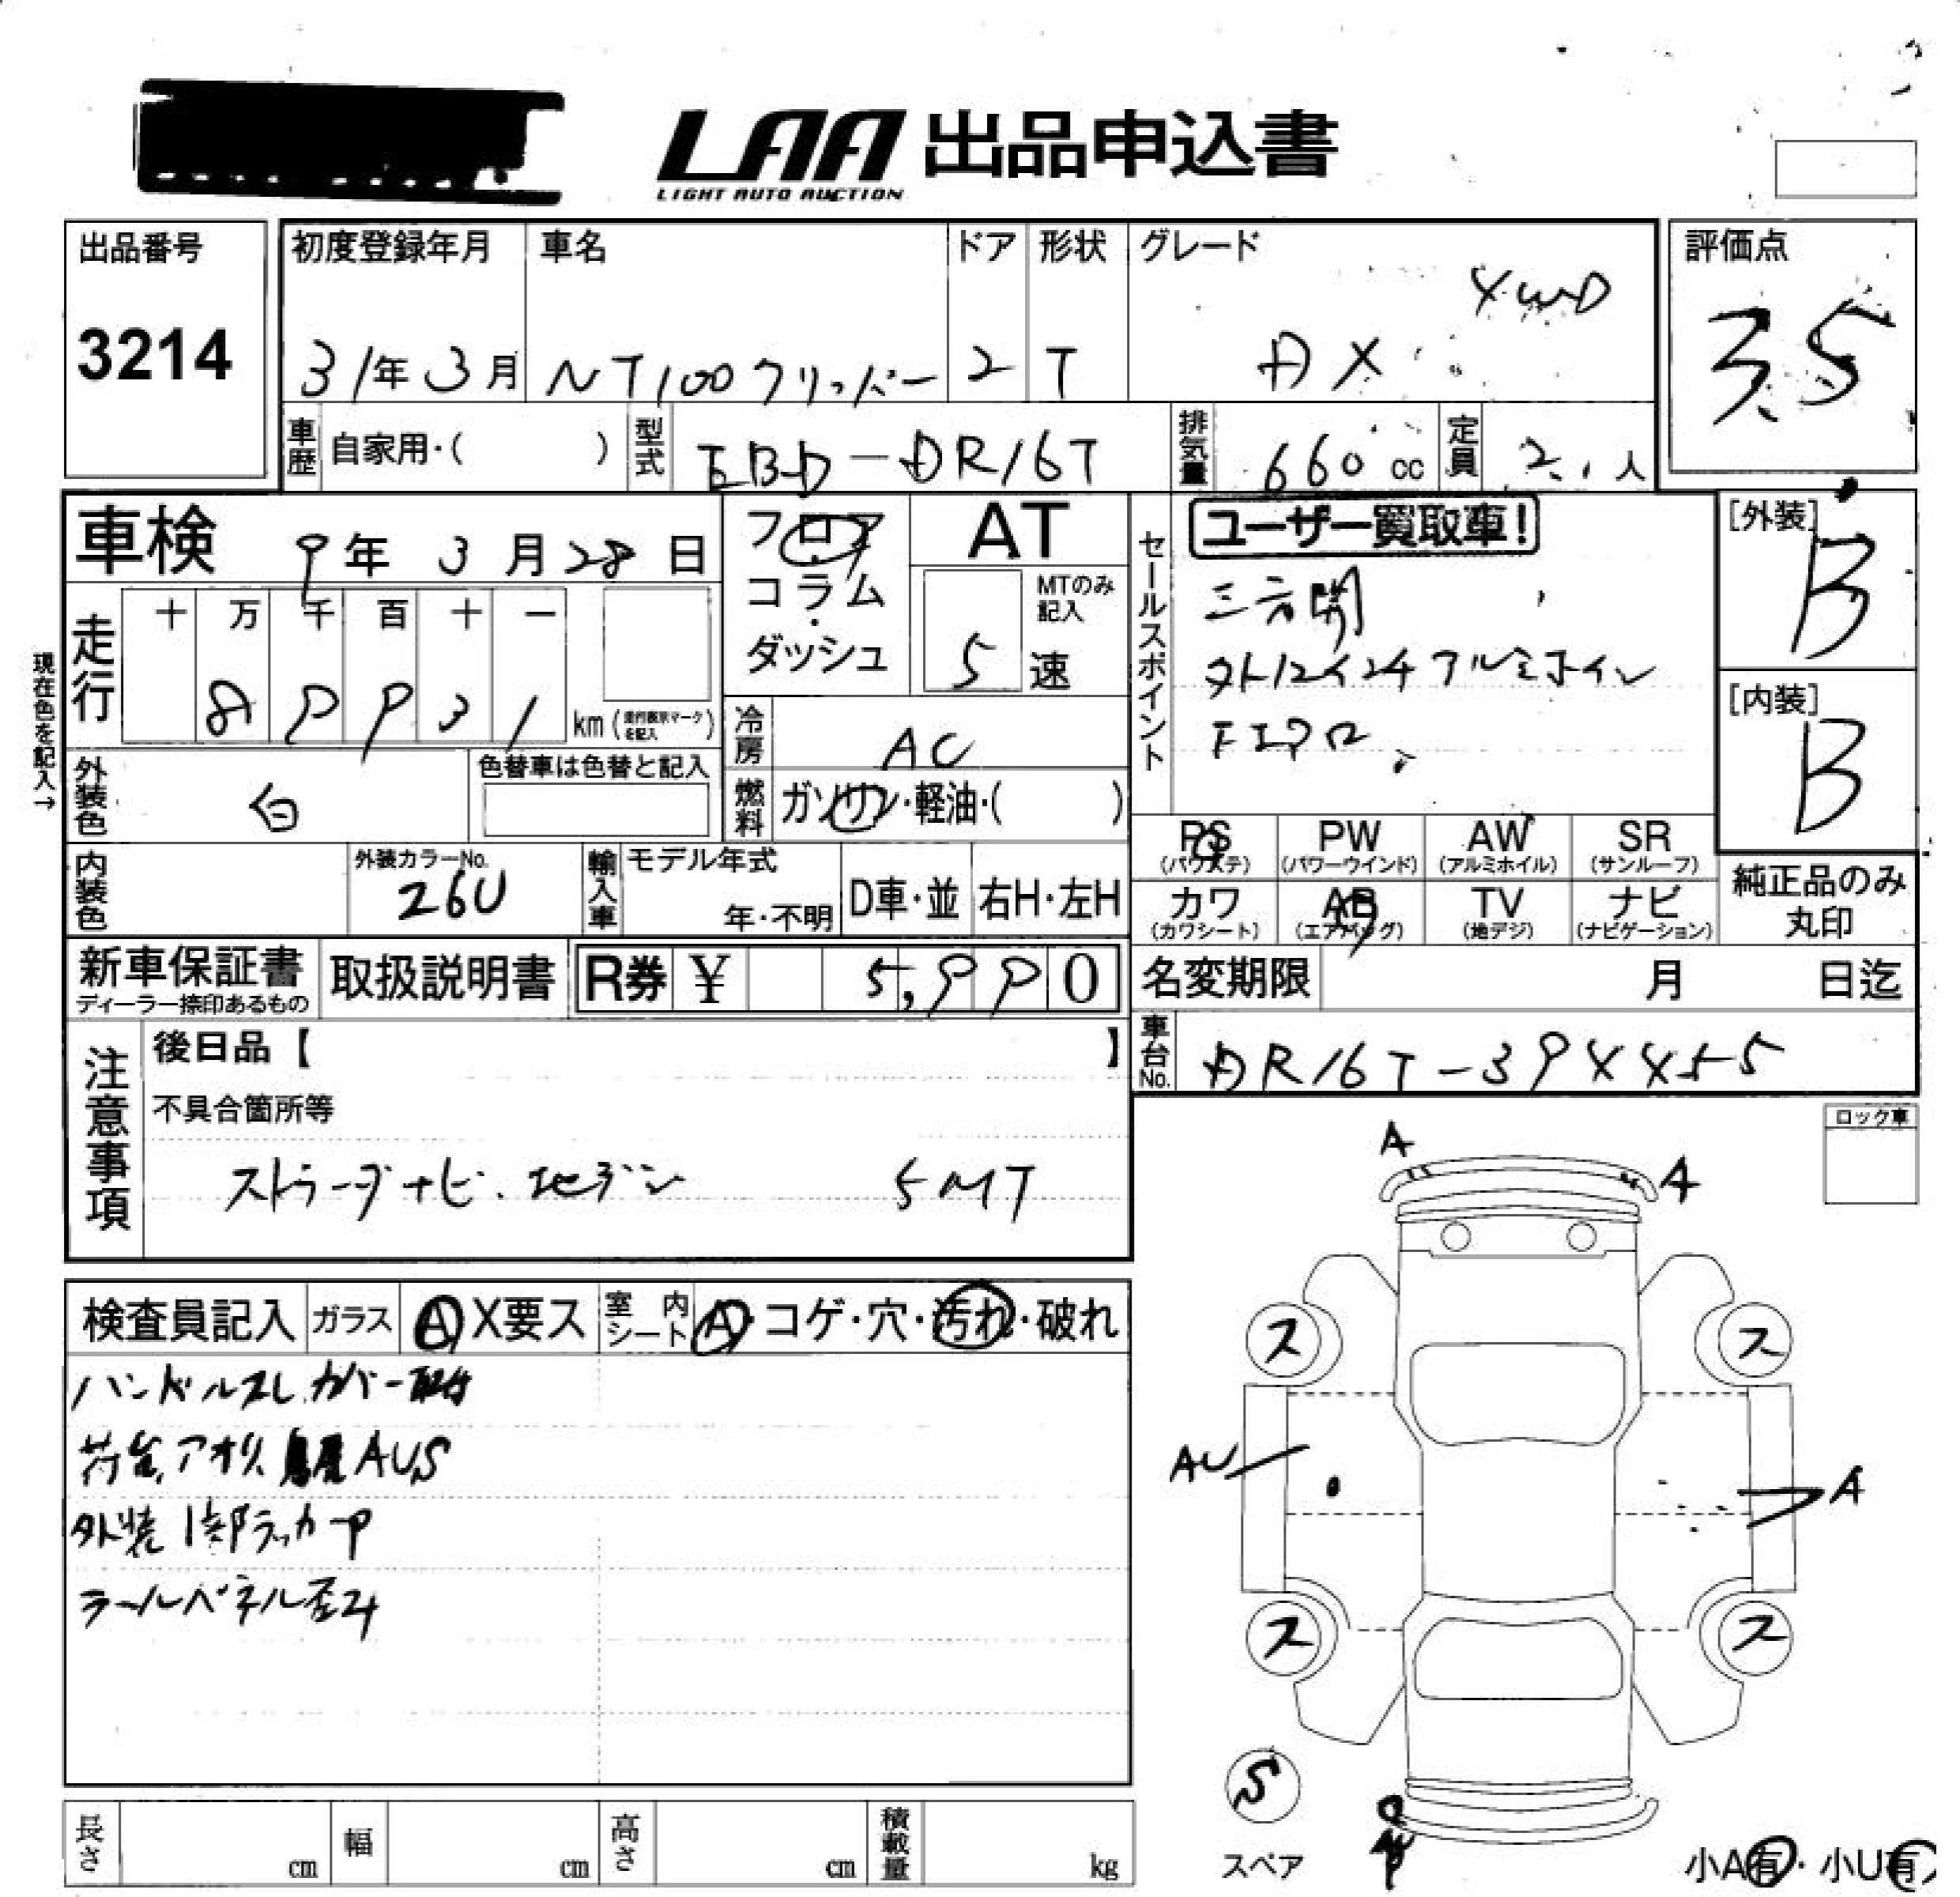 LAA 出品申込書
LIGHT AUTO AUCTION
出品番号
3214
初度登録年月
31年3月
車名
NT100クリッパー
ドア
2
形状
T
グレード
4WD
DX
評価点
3.5
車歴
自家用・( )
型式
EBD-DR16T
排気量
660 cc
定員
2 人
車検
9年 3月28日
フロア
コラム
ダッシュ
AT
MTのみ記入
5 速
セールスポイント
ユーザー買取車!
三方開
社外12インチアルミホイル
[外装]
B
[内装]
B
現在色を記入→
走行
十 万 千 百 十 一
89931
km (走行表示マークを記入)
外装色
白
色替車は色替と記入
冷房
AC
燃料
ガソリン・軽油・( )
PS (パワステ)
PW (パワーウインド)
AW (アルミホイル)
SR (サンルーフ)
カワ (カワシート)
AB (エアバッグ)
TV (地デジ)
ナビ (ナビゲーション)
純正品のみ丸印
内装色
外装カラーNo.
26U
輸入車
モデル年式
年・不明
D車・並
右H・左H
新車保証書
ディーラー捺印あるもの
取扱説明書
R券 ¥ 5,990
名変期限 月 日迄
車台No.
DR16T-394455
注意事項
後日品【 】
不具合箇所等
ストラーダナビ、地デジ 5MT
ロック車
検査員記入
ガラス
A X要ス
室内シート
A・コゲ・穴・汚れ・破れ
ハンドルスレ、カバー取付
荷台、アオリ、鳥居AUS
外装1部ラッカーP
テールパネル歪み
A
A
ス
ス
AU
A
ス
ス
S
スペア
小A有・小U有
長さ cm
幅 cm
高さ cm
積載量 kg